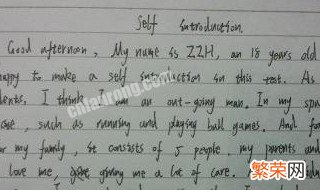 Self introduction.
Good afternoon, My name is ZZH, an 18 years old
happy to make a self introduction in this test. As
dents, I think I am an out-going man. In my spa
, such as running and playing ball games. And fo
r my family, it consists of 5 people my parents and
love me, giving me a lot of care.
繁荣网